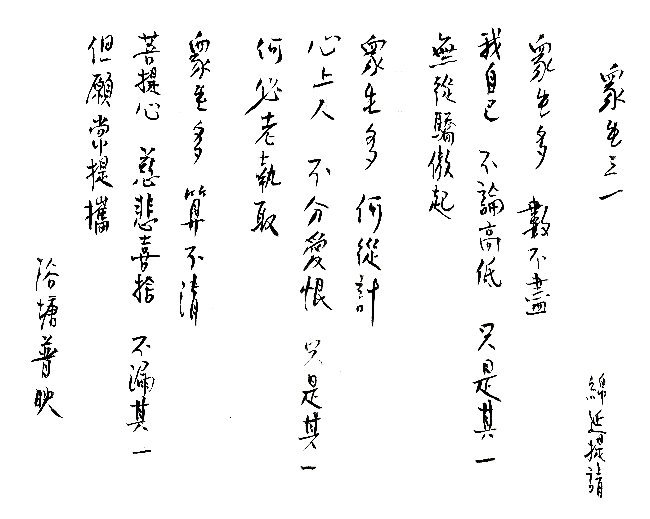 眾生之一
綿延提請
眾生多 數不盡
我自己 不論高低 只是其一
無從驕傲起
眾生多 何從計
心上人 不分愛恨 只是其一
何必老執取
眾生多 算不清
菩提心 慈悲喜捨 不漏其一
但願常提攜
浴塘普映